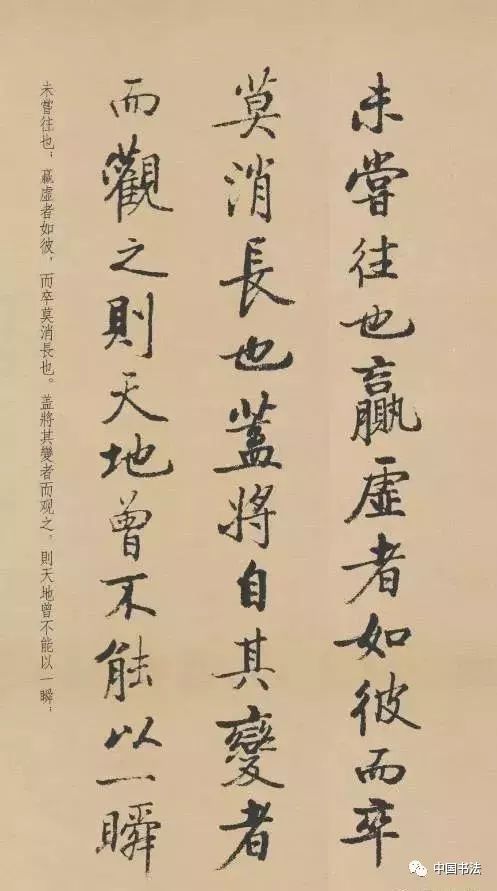 未嘗往也贏虛者如彼而卒
莫消長也蓋將自其變者
而觀之則天地曾不能以一瞬
未嘗往也；贏虛者如彼，而卒莫消長也。蓋將其變者而观之。則天地曾不能以一瞬；
中国书法